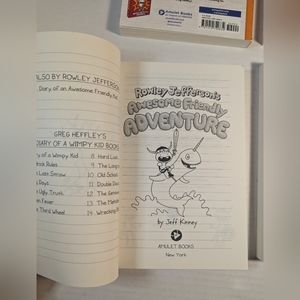 Amulet Books
ALSO BY ROWLEY JEFFERSON
Diary of an Awesome Friendly Kid
GREG HEFFLEY'S
DIARY OF A WIMPY KID BOOKS
of a Wimpy Kid 8 Hard Luck
Rules 9 The Long
Last Straw 10 Old School
Days 11 Double Down
Ugly Truth 12 The
Fever 13 The
Third Wheel 14 Wrecking
Rowley Jefferson's
Awesome Friendly
ADVENTURE
by Jeff Kinney
AMULET BOOKS
New York